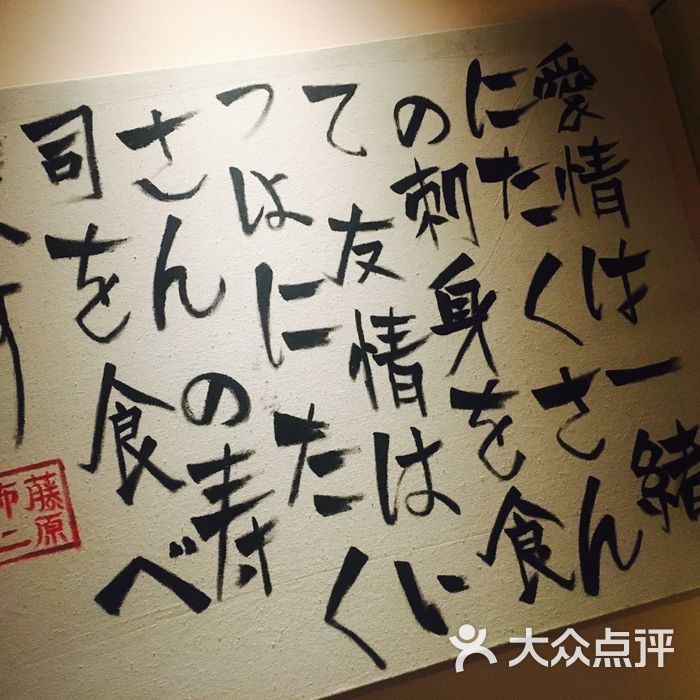 愛情は一緒
にたくさん
の刺身を食
て友情はい
つはにたく
さんの寿
司を食べ
藤原
大众点评